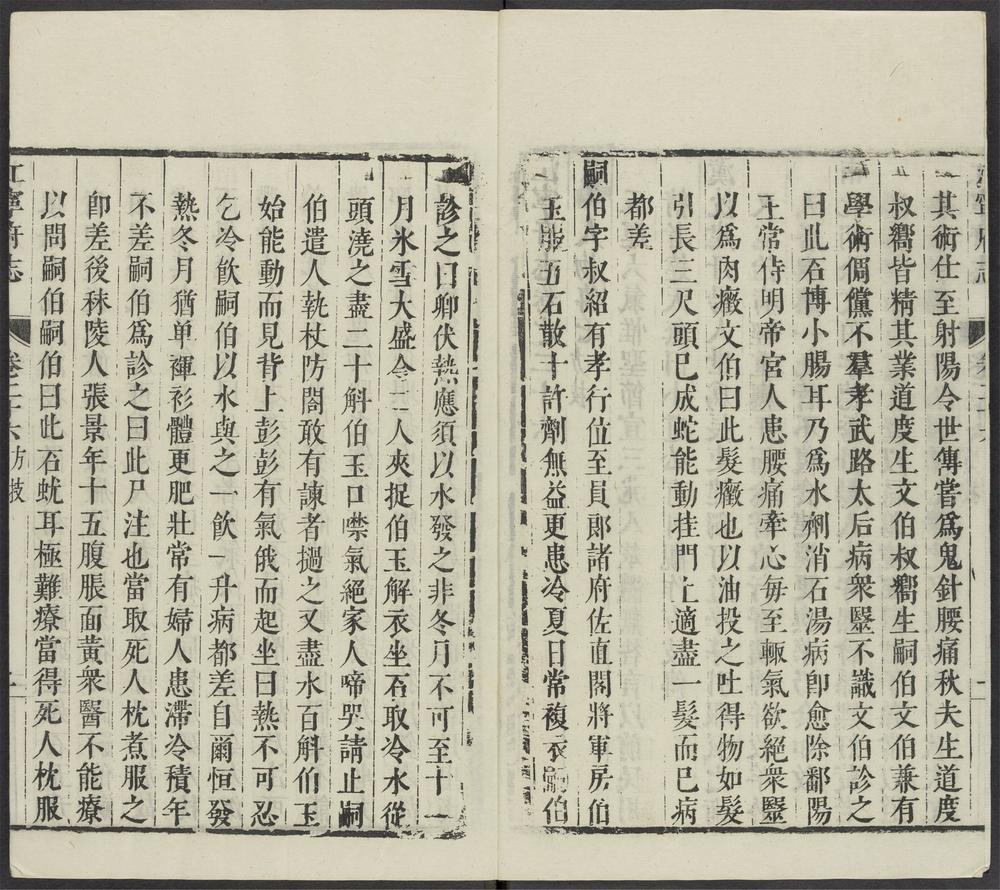 其術仕至射陽令世傳嘗爲鬼針腰痛秋夫生道度
叔嚮皆精其業道度生文伯叔嚮生嗣伯文伯兼有
學術倜儻不羣孝武路太后病衆毉不識文伯診之
曰此石博小腸耳乃爲水劑消石湯病卽愈除鄱陽
王常侍明帝宮人患腰痛牽心每至輒氣欲絕衆毉
以爲肉癥文伯曰此髮癥也以油投之吐得物如髮
引長三尺頭已成蛇能動挂門上適盡一髮而已病
都差
嗣伯字叔紹有孝行位至員郎諸府佐直閣將軍房伯
玉服五石散十許劑無益更患冷夏日常複衣嗣伯
診之曰卿伏熱應須以水發之非冬月不可至十一
月氷雪大盛令二人夾捉伯玉解衣坐石取冷水從
頭澆之盡二十斛伯玉口噤氣絕家人啼哭請止嗣
伯遣人執杖防閤敢有諫者撾之又盡水百斛伯玉
始能動而見背上彭彭有氣俄而起坐曰熱不可忍
乞冷飮嗣伯以水與之一飮一升病都差自爾恒發
熱冬月猶单褌衫體更肥壯常有婦人患滯冷積年
不差嗣伯爲診之曰此尸注也當取死人枕煮服之
卽差後秣陵人張景年十五腹脹面黃衆醫不能療
以問嗣伯嗣伯曰此石蚘耳極難療當得死人枕服
江寧府志 卷二十六方技